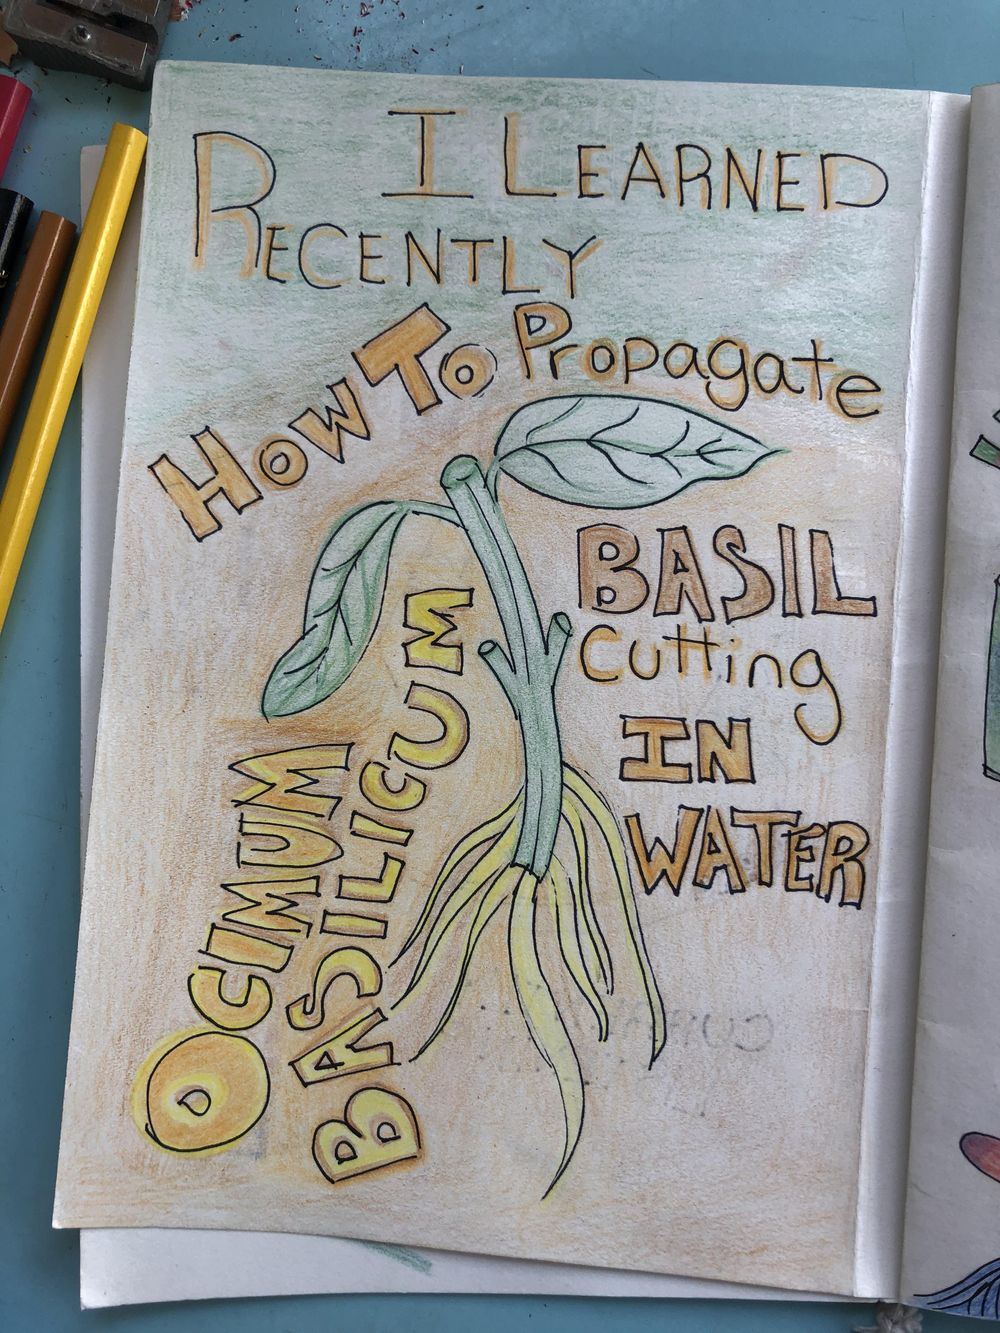 I LEARNED
RECENTLY
HOW TO Propagate
BASIL
Cutting
IN
WATER
OCIMUM
BASILICUM